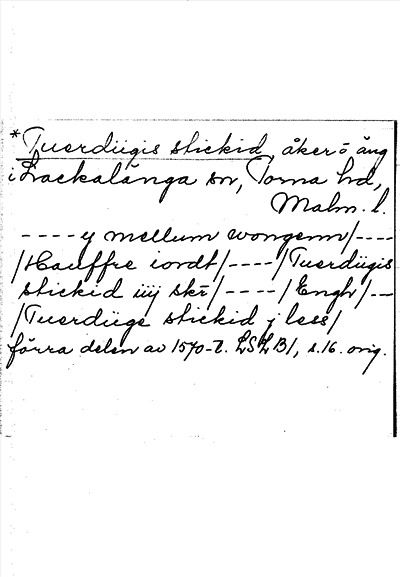 *Tuerdiigis stickid, åker o äng
i Lackalänga sn, Torna hd,
Malm. l.
----y mellum wongenn/----
/Hauffre iordt/----/Tuerdiigis
stickid iiij skr/----/Engh/--
/Tuerdiige stickid j less/
förra delen av 1570-t. LSLB1, s.16. orig.